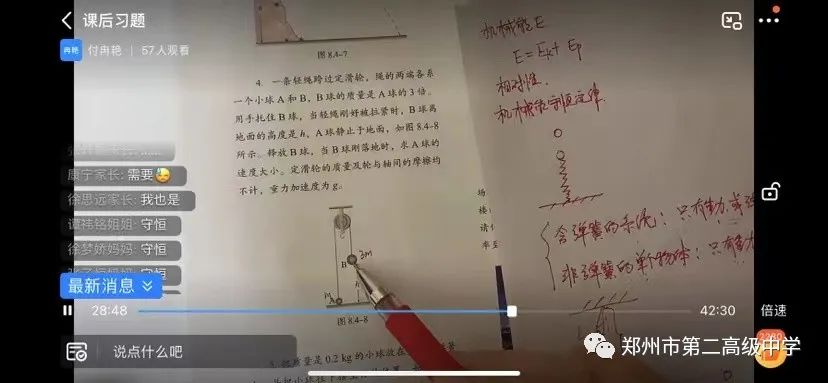 10:20
课后习题
冉艳 付冉艳 | 57人观看
图 8.4-7
4. 一条轻绳跨过定滑轮,绳的两端各系
一个小球 A 和 B,B球的质量是 A 球的 3 倍。
用手托住 B 球,当轻绳刚好被拉紧时,B球离
地面的高度是 h,A 球静止于地面,如图 8.4-8
所示。释放 B 球,当 B 球刚落地时,求 A 球的
速度大小。定滑轮的质量及轮与轴间的摩擦均
不计,重力加速度为 g。
B
3m
m
A
h
图 8.4-8
质量是 0.2 kg 的小球放在
机械能 E
E=Ek+Ep
相对性.
机械能守恒定律.
含弹簧的系统:只有重力,或弹
非弹簧的单个物体:只有重力
康宁家长: 需要😓
徐思远家长: 我也是
谭祎铭姐姐: 守恒
徐梦娇妈妈: 守恒
最新消息
28:48
42:30
倍速
说点什么吧
郑州市第二高级中学